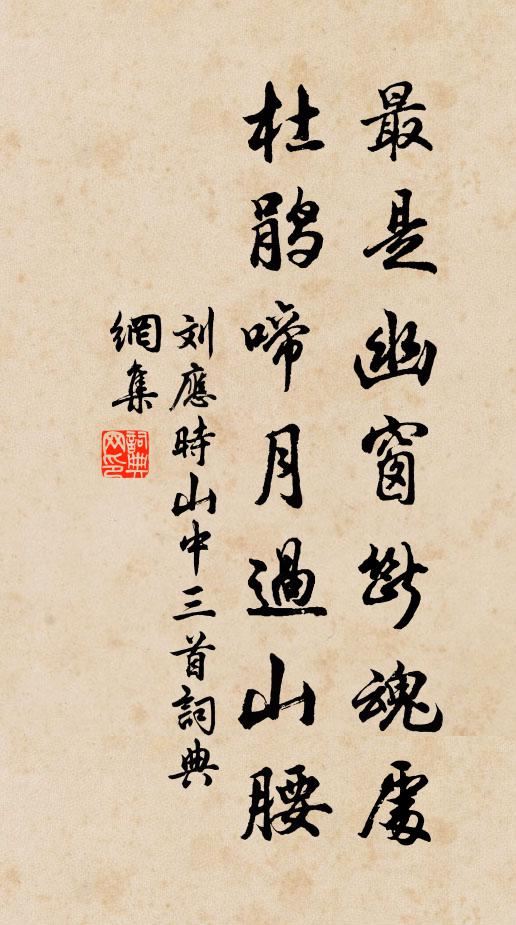 最是幽窗斷魂處
杜鹃啼月過山腰
刘應時山中三首詞典
網集
詞典網印